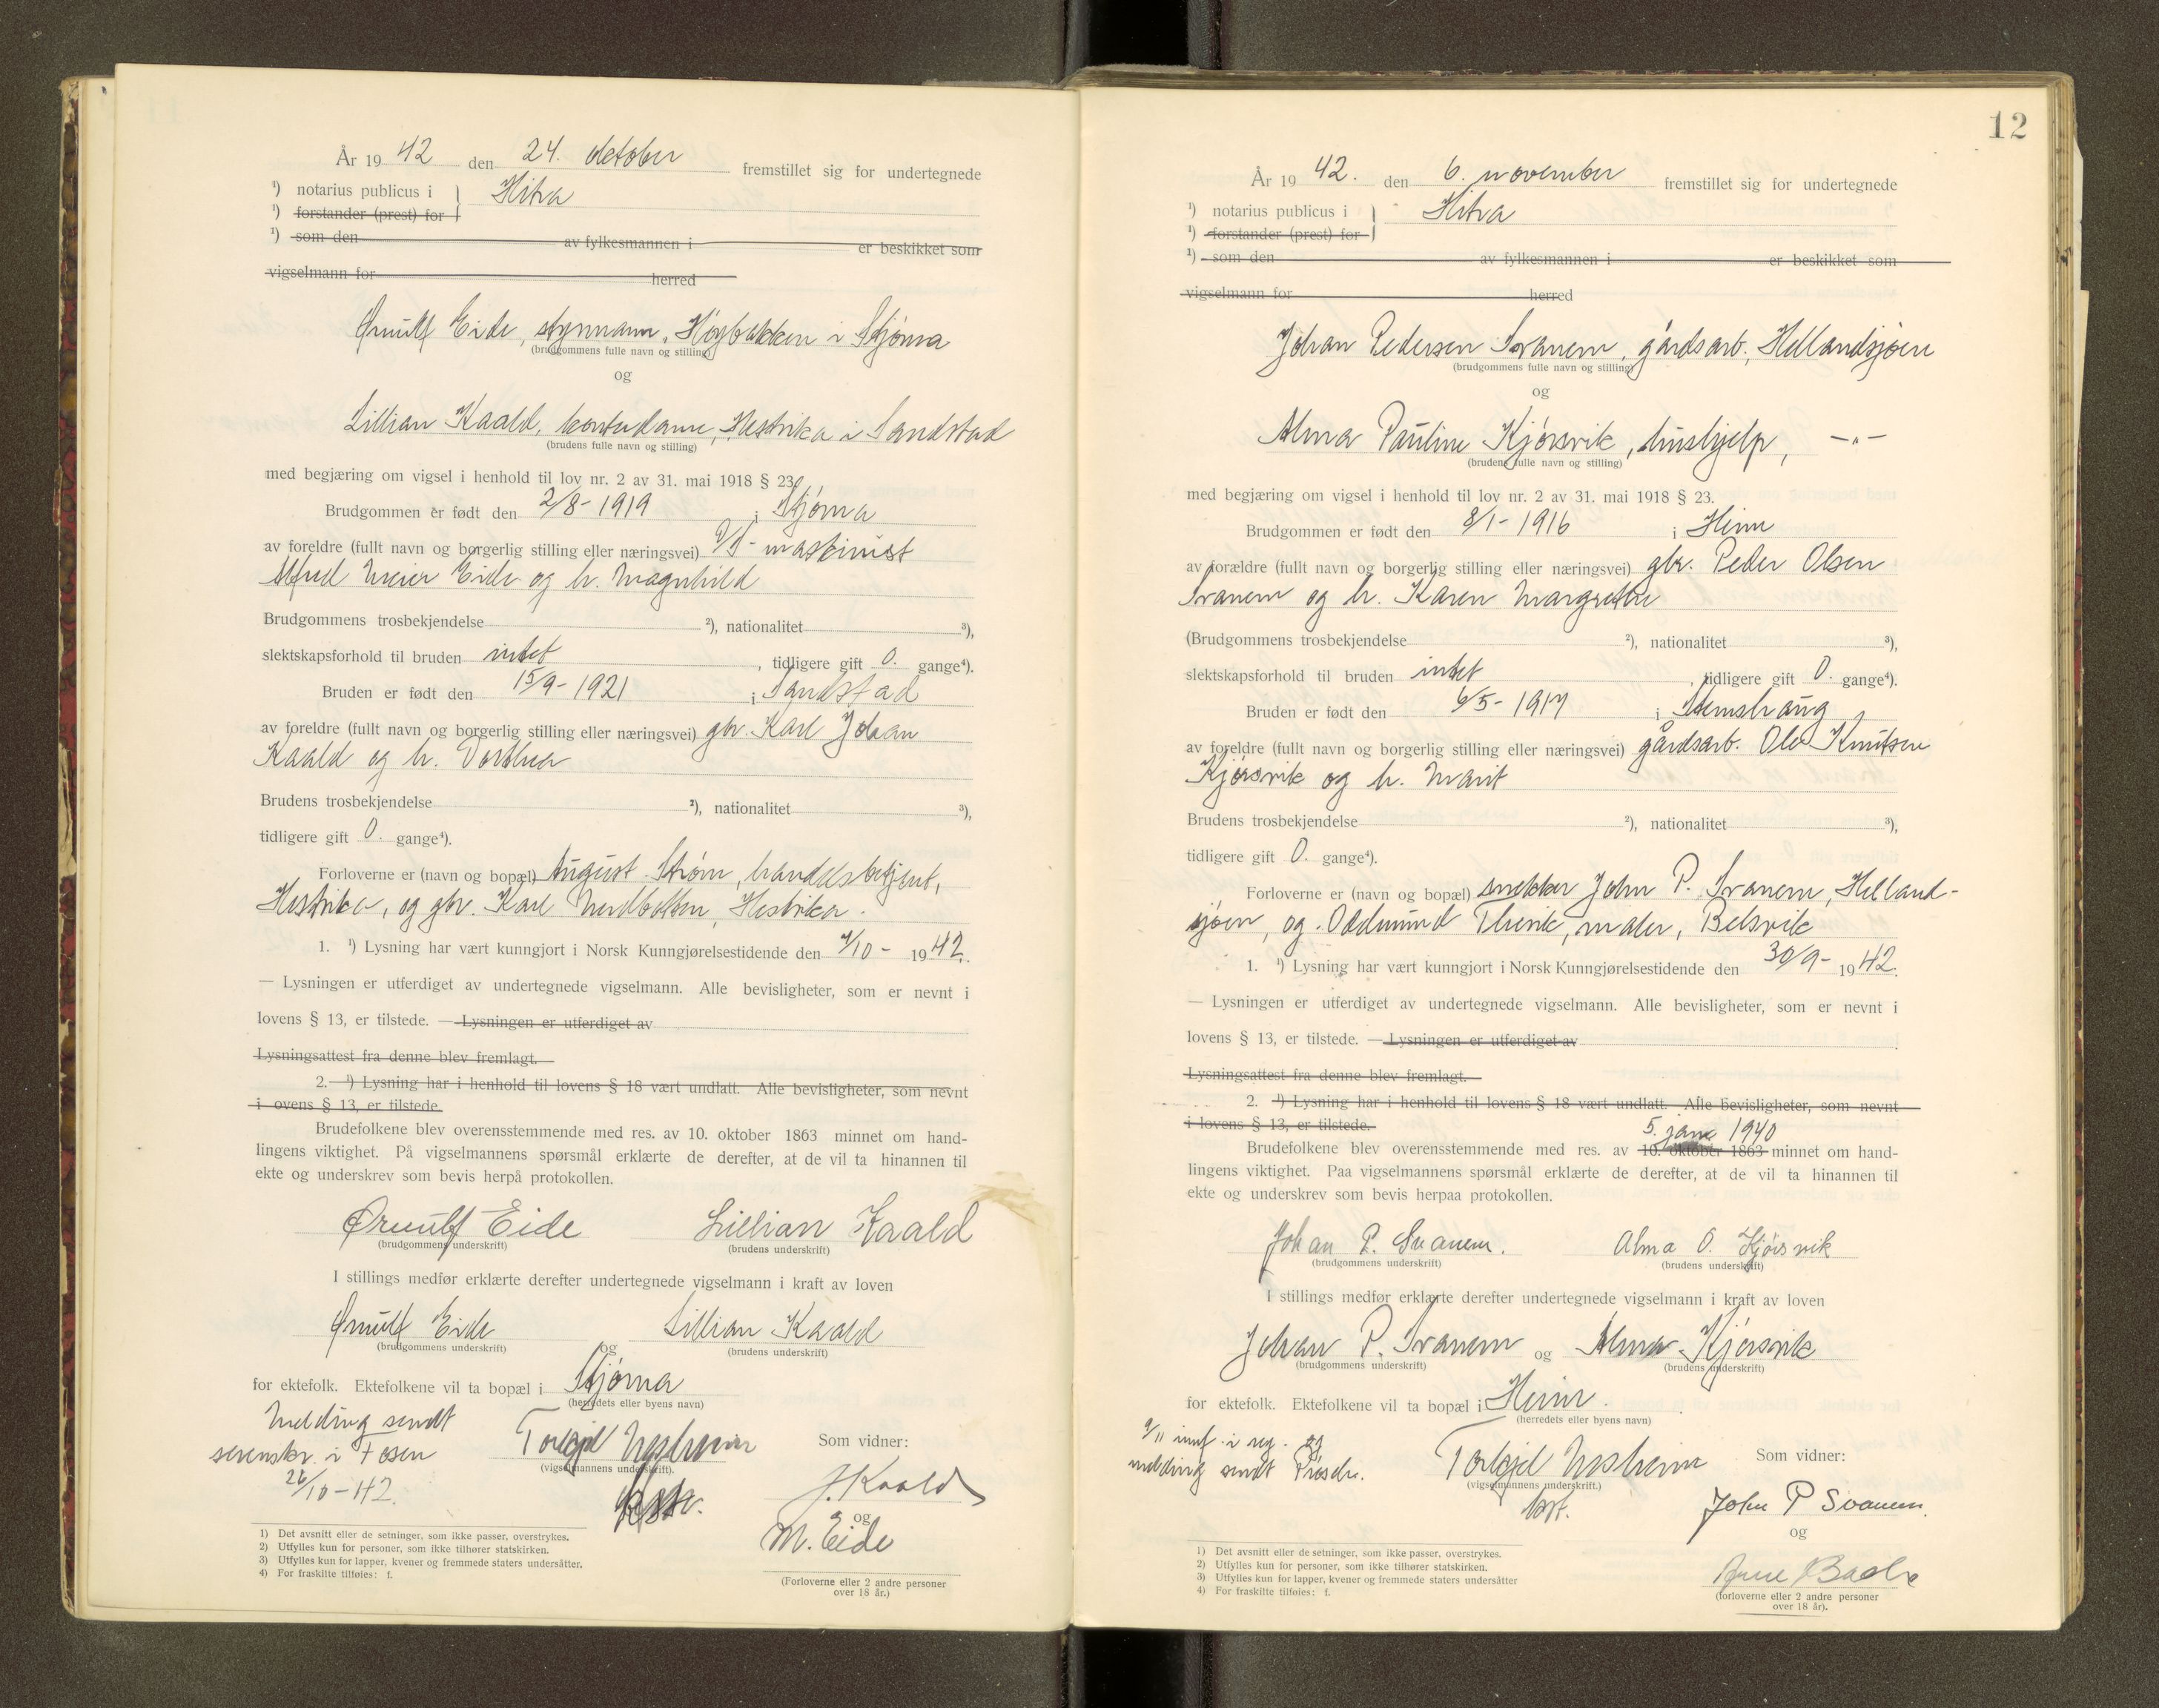 År 19 42 den 24. oktober fremstillet sig for undertegnede
¹) notarius publicus i } Hitra
¹) forstander (prest) for
¹) som den av fylkesmannen i er beskikket som
vigselmann for herred
Ørnulf Eide, styrmann, Høybakken i Stjørna
(brudgommens fulle navn og stilling)
og
Lillian Kaald, kontordame, Hestvika i Sandstad
(brudens fulle navn og stilling)
med begjæring om vigsel i henhold til lov nr. 2 av 31. mai 1918 § 23.
Brudgommen er født den 2/8-1919 i Stjørna
av foreldre (fullt navn og borgerlig stilling eller næringsvei) D/S-maskinist
Alfred Meier Eide og h. Magnhild
Brudgommens trosbekjendelse ²), nationalitet ³),
slektskapsforhold til bruden intet, tidligere gift 0. gange⁴).
Bruden er født den 15/9-1921 i Sandstad
av foreldre (fullt navn og borgerlig stilling eller næringsvei) gbr. Karl Johan
Kaald og h. Dorthea
Brudens trosbekjendelse ²), nationalitet ³),
tidligere gift 0. gange⁴).
Forloverne er (navn og bopæl) August Strøm, handelsbetjent,
Hestvika, og gbr. Karl Hestvika.
1. ¹) Lysning har vært kunngjort i Norsk Kunngjørelsestidende den 7/10- 1942.
— Lysningen er utferdiget av undertegnede vigselmann. Alle bevisligheter, som er nevnt i
lovens § 13, er tilstede. — Lysningen er utferdiget av
Lysningsattest fra denne blev fremlagt.
2. ¹) Lysning har i henhold til lovens § 18 vært undlatt. Alle bevisligheter, som nevnt
i ovens § 13, er tilstede.
Brudefolkene blev overensstemmende med res. av 10. oktober 1863 minnet om hand-
lingens viktighet. På vigselmannens spørsmål erklærte de derefter, at de vil ta hinannen til
ekte og underskrev som bevis herpå protokollen.
Ørnulf Eide Lillian Kaald
(brudgommens underskrift) (brudens underskrift)
I stillings medfør erklærte derefter undertegnede vigselmann i kraft av loven
Ørnulf Eide og Lillian Kaald
(brudgommens underskrift) (brudens underskrift)
for ektefolk. Ektefolkene vil ta bopæl i Stjørna
(herredets eller byens navn)
Melding sendt
sorenskr. i Fosen
26/10-42.
(vigselmannens underskrift).
Som vidner:
J. Kaald
og
M. Eide
(Forloverne eller 2 andre personer
over 18 år.)
1) Det avsnitt eller de setninger, som ikke passer, overstrykes.
2) Utfylles kun for personer, som ikke tilhører statskirken.
3) Utfylles kun for lapper, kvener og fremmede staters undersåtter.
4) For fraskilte tilføies: f.
12
År 19 42. den 6. november fremstillet sig for undertegnede
¹) notarius publicus i } Hitra
¹) forstander (prest) for
¹) som den av fylkesmannen i er beskikket som
vigselmann for herred
Johan Pedersen Svanem, gårdsarb., Hellandsjøen
(brudgommens fulle navn og stilling)
og
Alma Pauline Kjørsvik, hushjelp, —"—
(brudens fulle navn og stilling)
med begjæring om vigsel i henhold til lov nr. 2 av 31. mai 1918 § 23.
Brudgommen er født den 8/1-1916 i Heim
av forældre (fullt navn og borgerlig stilling eller næringsvei) gbr. Peder Olsen
Svanem og h. Karen Margrethe
(Brudgommens trosbekjendelse ²), nationalitet ³),
slektskapsforhold til bruden intet, tidligere gift 0. gange⁴).
Bruden er født den 6/5-1917 i Stemshaug
av foreldre (fullt navn og borgerlig stilling eller næringsvei) gårdsarb. Ole Knutsen
Kjørsvik og h. Marit
Brudens trosbekjendelse ²), nationalitet ³),
tidligere gift 0. gange⁴).
Forloverne er (navn og bopæl) snekker John P. Svanem, Helland-
sjøen, og Oddmund maler, Belsvik
1. ¹) Lysning har vært kunngjort i Norsk Kunngjørelsestidende den 30/9- 1942.
— Lysningen er utferdiget av undertegnede vigselmann. Alle bevisligheter, som er nevnt i
lovens § 13, er tilstede. — Lysningen er utferdiget av
Lysningsattest fra denne blev fremlagt.
2. ¹) Lysning har i henhold til lovens § 18 vært undlatt. Alle bevisligheter, som nevnt
i lovens § 13, er tilstede.
5. jan. 1940
Brudefolkene blev overensstemmende med res. av 10. oktober 1863 minnet om hand-
lingens viktighet. Paa vigselmannens spørsmål erklærte de derefter, at de vil ta hinannen til
ekte og underskrev som bevis herpaa protokollen.
Johan P. Svanem. Alma O. Kjørsvik
(brudgommens underskrift) (brudens underskrift)
I stillings medfør erklærte derefter undertegnede vigselmann i kraft av loven
Johan P. Svanem og Alma Kjørsvik
(brudgommens underskrift) (brudens underskrift)
for ektefolk. Ektefolkene vil ta bopæl i Heim.
(herredets eller byens navn)
9/11 innf. i reg. og
melding sendt
(vigselmannens underskrift.)
Som vidner:
John P Svanem.
og
(forloverne eller 2 andre personer
over 18 år).
1) Det avsnitt eller de setninger, som ikke passer, overstrykes.
2) Utfylles kun for personer, som ikke tilhører statskirken.
3) Utfylles kun for lapper, kvener og fremmede staters undersåtter
4) For fraskilte tilføies: f.